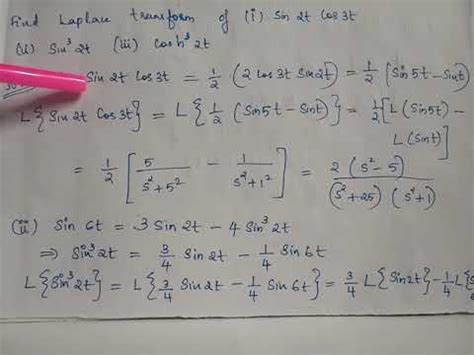 Find Laplace transform of (i) Sin 2t Cos 3t
(ii) Sin³ 2t (iii) Cosh³ 2t
Sin 2t Cos 3t = 1/2 (2 Cos 3t Sin 2t) = 1/2 (Sin 5t - Sin t)
L{Sin 2t Cos 3t} = L{1/2 (Sin 5t - Sin t)} = 1/2 [L(Sin 5t) -
L(Sin t)]
= 1/2 [5/(s²+5²) - 1/(s²+1²)] = 2(s²-5)/((s²+25)(s²+1))
(ii) Sin 6t = 3 Sin 2t - 4 Sin³ 2t
⇒ Sin³ 2t = 3/4 Sin 2t - 1/4 Sin 6t
L{Sin³ 2t} = L{3/4 Sin 2t - 1/4 Sin 6t} = 3/4 L{Sin 2t} - 1/4 L{